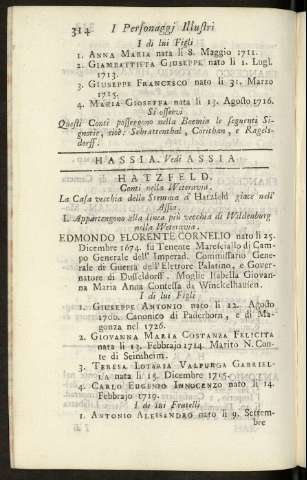 314 I Personaggj Illustri
I di lui Figli
1. ANNA MARIA nata li 8. Maggio 1711.
2. GIAMBATTISTA GIUSEPPE nato li 1. Lugl.
1713.
3. GIUSEPPE FRANCESCO nato li 31. Marzo
1715.
4. MARIA GIOSEFFA nata li 13. Agosto 1716.
Si osservi
Questi Conti posseggono nella Boemia le seguenti Si-
gnorie, cioè: Sobrattenthal, Corithan, e Ragels-
dorff.
HASSIA. Vedi ASSIA
HATZFELD.
Conti nella Weteravia.
La Casa vecchia dello Stemma d'Hatzfeld giace nell'
Assia.
I. Appartengono alla linea più vecchia di Wildenburg
nella Weteravia.
EDMONDO FLORENTE CORNELIO nato li 25.
Dicembre 1674. fu Tenente Maresciallo di Cam-
po Generale dell' Imperad. Commissario Gene-
rale di Guerra dell'Elettore Palatino, e Gover-
natore di Dusseldorff. Moglie Isabella Giovan-
na Maria Anna Contessa da Winckelhausen.
I di lui Figli
1. GIUSEPPE ANTONIO nato li 12. Agosto
1700. Canonico di Paderborn, e di Ma-
gonza nel 1726.
2. GIOVANNA MARIA COSTANZA FELICITA
nata li 13. Febbrajo 1714. Marito N. Con-
te di Seinsheim.
3. TERESA LOTARIA VALPURGA GABRIEL-
LA nata li 15. Dicembre 1715.
4. CARLO EUGENIO INNOCENZO nato li 14.
Febbrajo 1719.
I di lui Fratelli
1. ANTONIO ALESSANDRO nato li 9. Settem-
bre